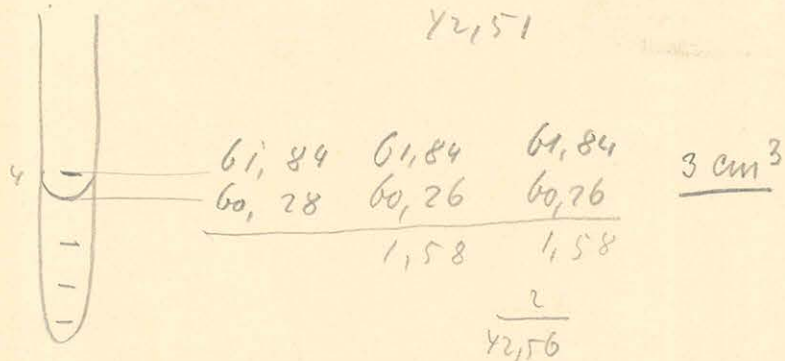 42,51
61,84 61,84 61,84 3 cm³
4
60,28 60,26 60,26
1,58 1,58
2
42,56